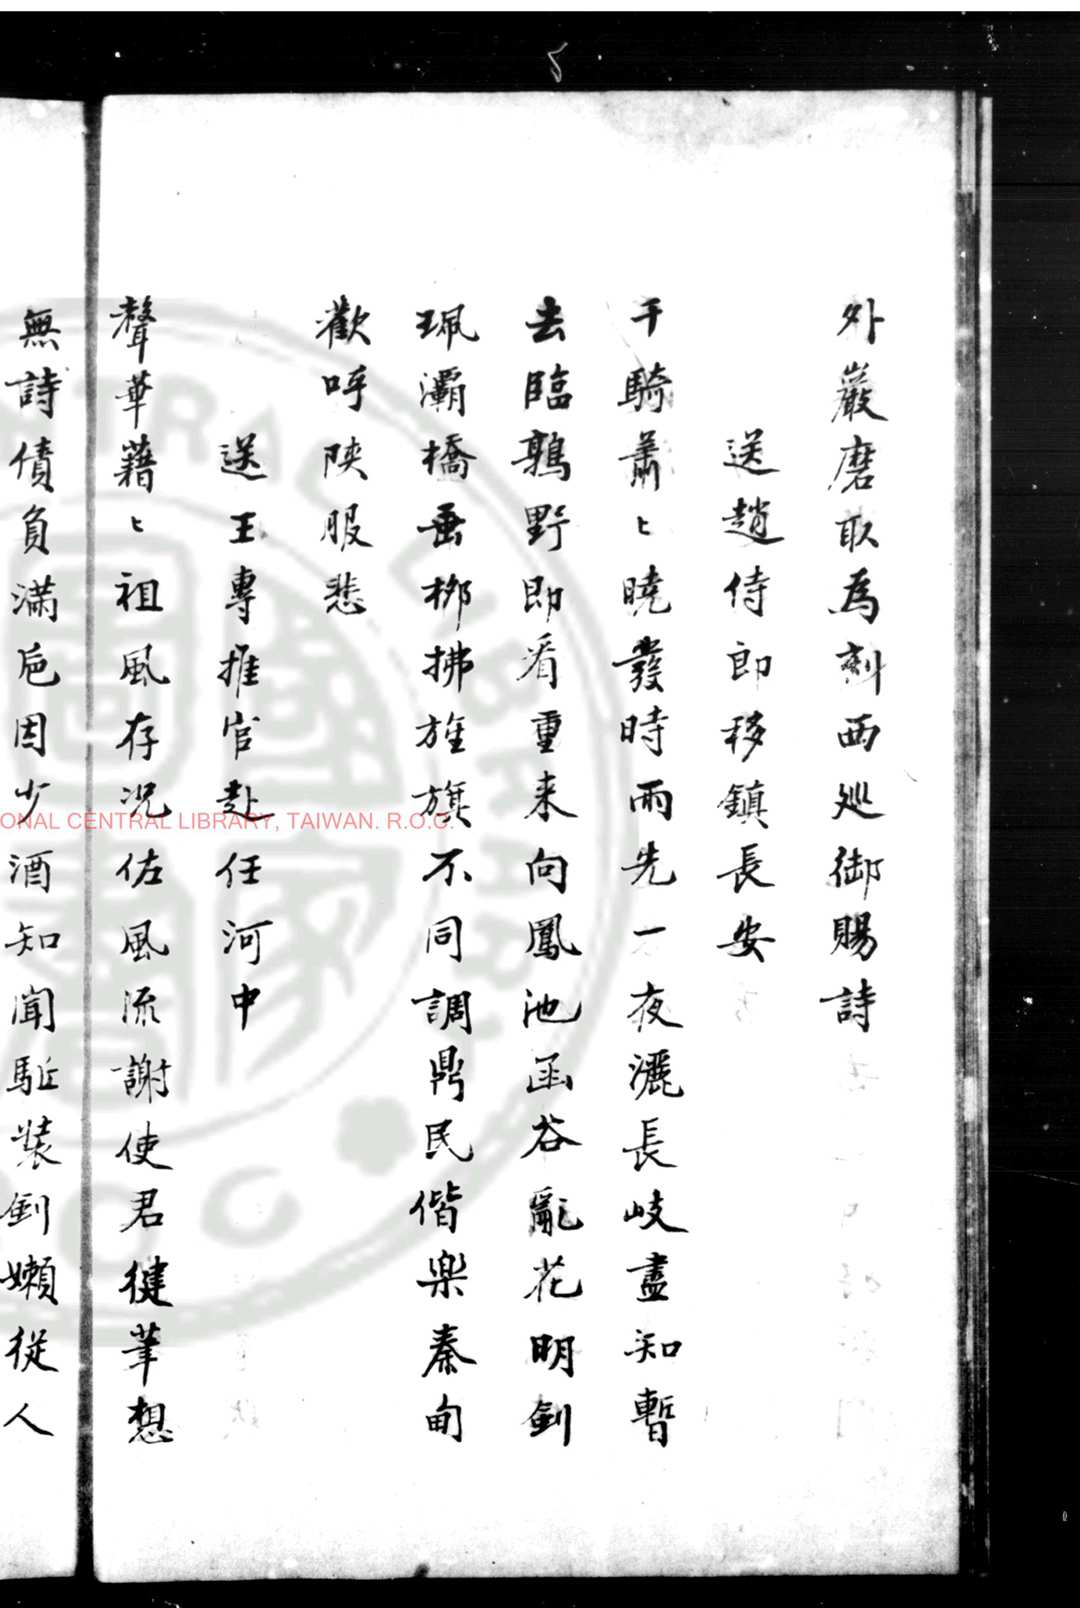 外巖磨取為刻西巡御賜詩
送趙侍郎移鎮長安
千騎蕭〻曉發時雨先一夜灑長岐盡知暫
去臨鶉野即看重来向鳳池函谷亂花明劍
珮灞橋垂栁拂旌旗不同調鼎民偕樂秦甸
歡呼陝服悲
送王專推官赴任河中
聲華藉〻祖風存況佐風流謝使君健筆想
無詩債負滿卮因少酒知聞駈装劍嬾從人
NATIONAL CENTRAL LIBRARY, TAIWAN. R.O.C.